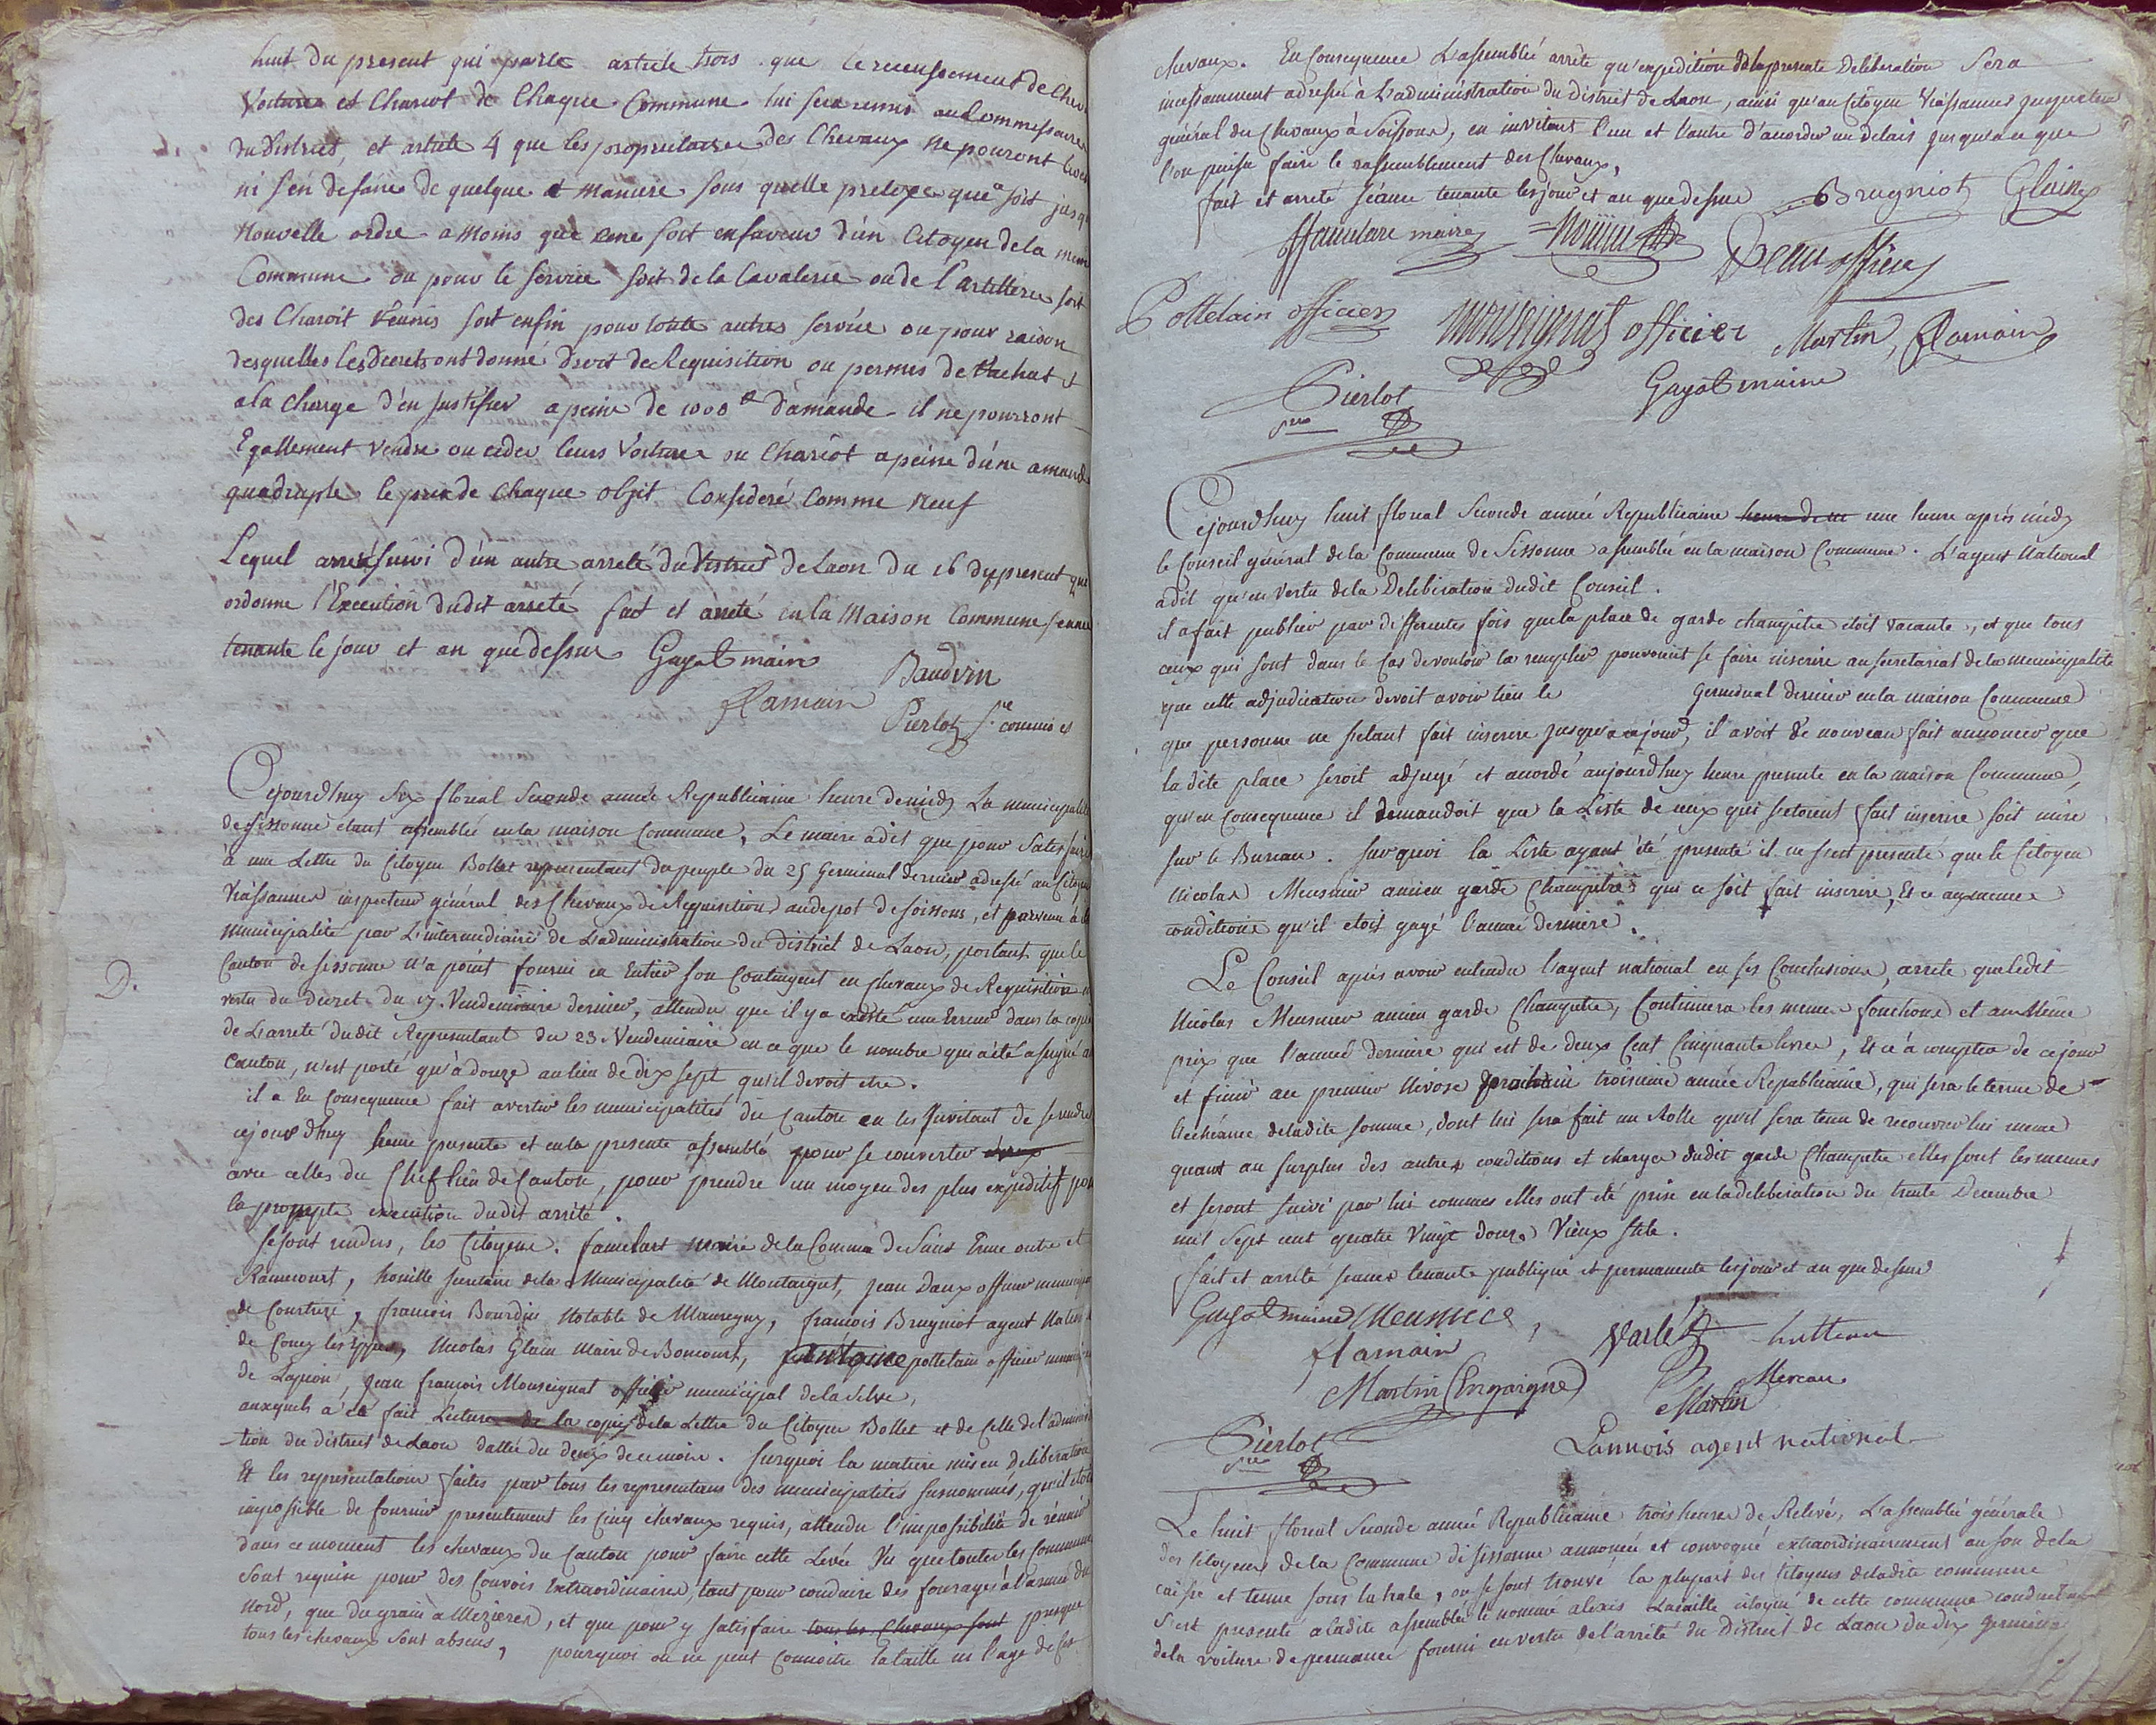 huit du present qui parle article trois que le recensement de Chev
Voitures et Chariot de Chaque Commune lui sera remis au Commissaire
du District, et article 4 que les proprietaires des Chevaux ne pouront
ni s'en defaire de quelque manière sous quelle pretexe que soit jusqu
Nouvelle ordre a moins que ce ne soit en faveur d'un Citoyen de la meme
Commune ou pour le service soit de la Cavalerie ou de l'artillerie soit
des Charoit réunis soit enfin pour toute autres service ou pour raison
desquelles les Decrets ont donné droit de Requisition ou permis de
a la charge d'en justifier a peine de 1000 # d'amande il ne pourront
Egallement Vendre ou ceder leurs Voiture ou Chariot a peine d'une amande
quadruple le prix de chaque objet Consideré Comme neuf
Lequel arreté suivi d'un autre arreté du District de Laon du 16 du present qui
ordonne l'Execution dudit arreté fait et arreté en la Maison Commune seance
tenante le jour et an que dessus Guyot maire Baudoin
flamain Pierlot s.re commis es
Cejourdhuy Six floreal Seconde année Republicaine heure de midy La municipalité
de Sissonne étant assemblée en la maison Commune, Le maire a dit que pour Satisfaire
à une Lettre du Citoyen Bollet representant du peuple du 25 Germinal dernier adressé au Citoyen
Viassannes inspecteur général des Chevaux de Requisition au depot de Soissons, et parvenu à la
municipalité par L'intermediaire de L'administration du District de Laon, portant que le
D.
Canton de Sissonne n'a point fourni en Entier son Contingent en chevaux de Requisition en
vertu du decret du 17. Vendemiaire dernier, attendu que il y a existé une Erreur dans la copie
de L'arreté dudit Representant du 23 Vendemiaire en ce que le nombre qui a été assigné au
Canton, n'est porté qu'à douze au lieu de dix sept qu'il devoit etre.
il a En Consequence fait avertir les municipalités du Canton en les Invitant de se rendre
cejourdhuy heure presente et en la presente assemblé pour se convertir
avec celles du Chef lieu de Canton, pour prendre un moyen des plus expeditif pour
la prompte execution dudit arrêté.
Se sont rendus, les Citoyens. famelart maire de la Commune de Saint Erme outre et
Ramecourt, houille secretaire de la Municipalité de Montaigut, Jean Daux officier municipal
de Courtrizi, francois Bourdin Notable de Mauregny, francois Brugniot agent National
de Coucy les Eppes, Nicolas Glain Maire de Boncourt, Antoine pottelain officier municipal
de Lappion, Jean francois Monseignat officier municipal de la Selve,
auxquels a été fait Lecture de la copie de la Lettre du Citoyen Bollet et de Celle de l'administra
-tion du district de Laon dattée du deux de ce mois. Surquoi la matiere mis en deliberation
Et les representations faites par tous les representans des municipalités susnommés, qu'il étoit
impossible de fournir presentement les Cinq chevaux requis, attendu l'impossibilité de réunir
dans ce moment les chevaux du Canton pour faire cette Levée Vu que toutes les Communes
Sont requise pour des Convois Extraordinaires, tant pour conduire des fourages à l'armée du
Nord, que du grain a Mezières, et que pour y satisfaire tous les Chevaux sont presque
tous les chevaux sont absens, pourquoi on ne peut Connoitre la taille ni l'age de ses
chevaux. En Consequence L'assemblée arrête qu'expedition de la presente Deliberation Sera
incessamment adressé à L'administration du District de Laon, ainsi qu'au Citoyen Viassannes inspecteur
général des Chevaux à Soissons, en invitant l'un et l'autre d'accorder un delais jusqu'a ce que
l'on puisse faire le rassemblement des Chevaux,
fait et arreté séance tenante les jour et an que dessus Brugniot Glain
ffamelare maire Houiill Deaux officier
Pottelain officier monseignat officier Martin, flamain
Pierlot Guyot maire
sre
Cejourdhuy huit floreal Seconde année Republicaine heure de une heure après midy
le Conseil général de la Commune de Sissonne assemblé en la maison Commune. L'agent National
a dit qu'en Vertu de la Deliberation dudit Conseil.
il a fait publier par differentes fois que la place de garde champêtre étoit vacante, et que tous
ceux qui sont dans le Cas de vouloir la remplir pouvoient se faire inscrire au Secretariat de la municipalité
que cette adjudication devoit avoir lieu le Germinal dernier en la maison Commune
que personne ne s'étant fait inscrire jusqu'à ce jour, il avoit de nouveau fait annoncer que
la dite place seroit adjugé et accordé aujourdhuy heure presente en la maison Commune,
qu'en Consequence il demandoit que la Liste de ceux qui s'etoient fait inscrire soit mise
sur le Bureau. Surquoi la Liste ayant été presenté il ne s'est presenté que le Citoyen
Nicolas Meusnier ancien garde Champêtre qui ce soit fait inscrire, Et ce aux memes
conditions qu'il etoit gagé l'année derniere.
Le Conseil après avoir entendu l'agent national en ses Conclusions, arrete que ledit
Nicolas Meusnier ancien garde Champetre, Continuera les memes fonctions et au Même
prix que l'année derniere qui est de deux Cent Cinquante livres, Et ce à compter de ce jour
et finir au premier Nivose prochain troisieme année Republicaine, qui sera le terme de
l'échéance de la dite somme, dont lui sera fait un Rolle qu'il sera tenu de recouvrer lui meme
quant au surplus des autres conditions et charges dudit garde Champetre elles sont les memes
et seront suivi par lui commes elles ont été prise en la deliberation du trente Decembre
mil Sept cent quatre Vingt douze Vieux stile.
fait et arrêté seance tenante publique et permanente les jour et an que dessus
Guyot maire Meusnier, Varlet hutteau
flamain Mereau
Martin (Engaigne) Martin
Pierlot Lannois agent national
sre
Le huit floreal Seconde année Republicaine trois heures de Relevés, L'assemblé générale
des Citoyens de la Commune de Sissonne annoncée et convoqué extraordinairement au son de la
caisse et tenue sous la hale, ou se sont trouvé la plupart des Citoyens de ladite commune
S'est presenté a ladite assemblé le nommé alexis Lacaille citoyen de cette commune conducteur
de la voiture de permance fourni en vertu de l'arreté du District de Laon du dix germinal